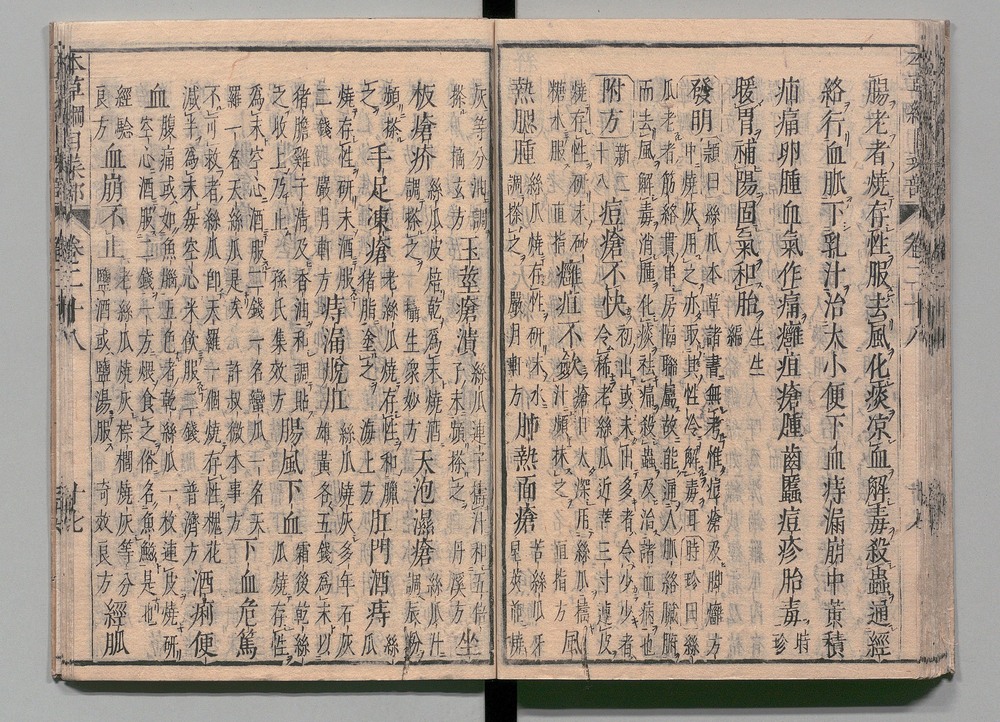 腸老者燒存性服去風化痰凉血解毒殺蟲通經
絡行血脈下乳汁治大小便下血痔漏崩中黃積
疝痛卵腫血氣作痛癰疽瘡腫齒䘌痘疹胎毒時珍
暖胃補陽固氣和胎生生編
發明頴曰絲瓜本草諸書無考惟痘瘡及脚癰方
中燒灰用之亦取其性冷解毒耳時珍曰絲
瓜老者筋絡貫串房隔聯屬故能通人脈絡臟腑
而去風解毒消腫化痰祛痛殺蟲及治諸血病也
附方新二十八痘瘡不快初出或未出多者令少少者
令稀老絲瓜近蒂三寸連皮
燒存性研末砂
糖水服直指癰疽不斂瘡口太深用絲瓜搗
汁頻抹之直指方風
熱腮腫絲瓜燒存性研末水
調搽之嚴月軒方肺熱面瘡苦絲瓜牙
皂莢並燒
灰等分油調
搽摘玄方玉莖瘡潰絲瓜連子擣汁和五倍
子末頻搽之丹溪方坐
板瘡疥絲瓜皮焙乾爲末燒酒
調搽之攝生衆妙方天泡濕瘡絲瓜汁
調辰粉
頻搽之手足凍瘡老絲瓜燒存性和臘
猪脂塗之海上方肛門酒痔絲瓜
燒存性研末酒服
二錢嚴月軒方痔漏脫肛絲瓜燒灰多年石灰
雄黃各五錢爲末以
猪膽雞子清及香油和調貼
之收上乃止孫氏集效方腸風下血霜後乾絲
瓜燒存性
爲末空心酒服二錢一名蠻瓜一名天
羅一名天絲瓜是矣許叔微本事方下血危篤
不可救者絲瓜即天羅一個燒存性槐花
減半爲末每空心米飲服二錢普濟方酒痢便
血腹痛或如魚腦五色者乾絲瓜一枚連皮燒研
空心酒服二錢一方煨食之俗名魚鰦是也
經驗
良方血崩不止老絲瓜燒灰棕櫚燒灰等分
鹽酒或鹽湯服奇效良方經脈
本草綱目菜部
卷二十八
十七